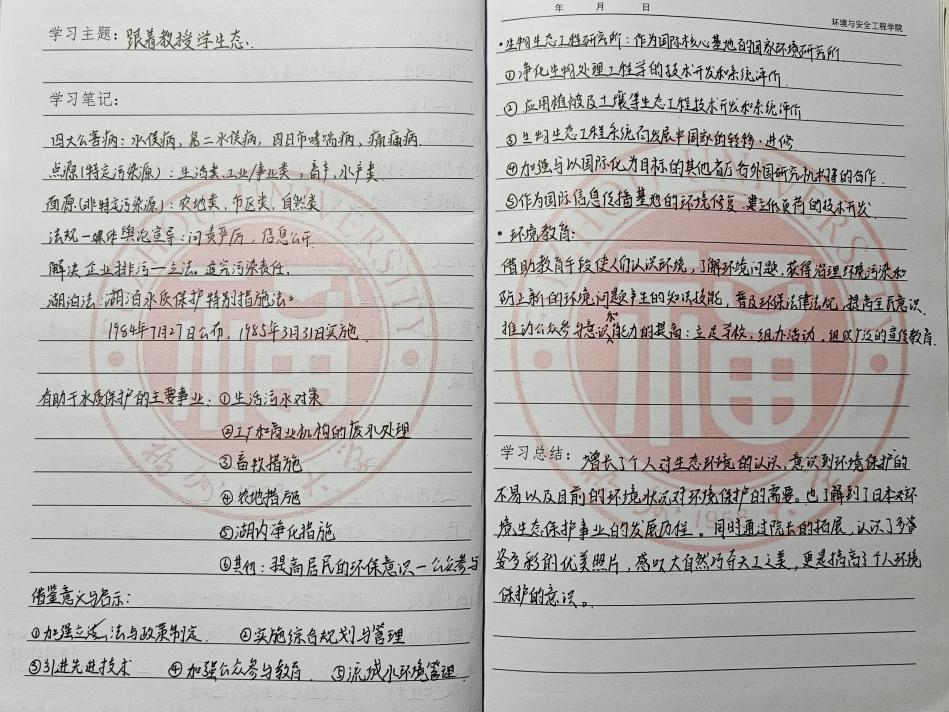 学习主题：跟着教授学生态、
学习笔记：
四大公害病：水俣病，第二水俣病，四日市哮喘病，痛痛病.
点源(特定污染源)：生活类、工业/事业类，畜产，水产类.
面源(非特定污染源)：农地类，市区类，自然类
法规一媒体舆论宣导：问责严厉，信息公开.
解决企业排污一立法，追究污染责任.
湖泊法 湖泊水质保护特别措施法。
1984年7月27日公布，1985年3月31日实施.
有助于水质保护的主要事业：①生活污水对策
②工厂和商业机构的废水处理
③畜牧措施
④农地措施
⑤湖内净化措施
⑥其他：提高居民的环保意识一公众参与
借鉴意义与启示：
①加强立法,法与政策制定. ②实施综合规划与管理
③引进先进技术 ④加强公众参与教育. ⑤流域水环境管理.
年 月 日
环境与安全工程学院
·生物生态工程研究所：作为国际核心基地的国家环境研究所
①净化生物处理工程学的技术开发和系统评价.
②应用植被及土壤等生态工程技术开发和系统评价
③生物生态工程系统向发展中国家的转移、进修
④加强与以国际化为目标的其他省厅与外国研究机构等的合作.
⑤作为国际信息传播基地的环境修复、建立低负荷的技术开发.
·环境教育：
借助教育手段使人们认识环境，了解环境问题，获得治理环境污染和
防止新的环境问题产生的知识技能，普及环保法律法规，提高全民意识.
推动公众参与意识和能力的提高：立足学校，组办活动，组织广泛的宣传教育.
学习总结： 增长了个人对生态环境的认识，意识到环境保护的
不易以及目前的环境状况对环境保护的需要。也了解到了日本对环
境生态保护事业的发展历程。同时通过院长的拓展，认识了多姿
多彩的优美照片，感叹大自然巧夺天工之美，更是提高了个人环境
保护的意识。